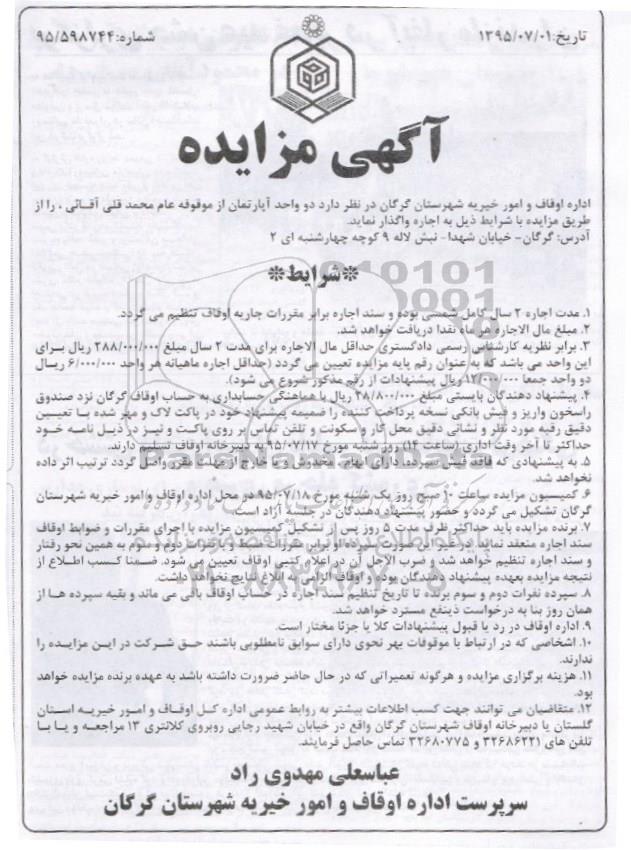 تاریخ:۱۳۹۵/۰۷/۰۱
شماره:۹۵/۵۹۸۷۴۴
آگهی مزایده
اداره اوقاف و امور خیریه شهرستان گرگان در نظر دارد دو واحد آپارتمان از موقوفه عام محمد قلی آقائی ، را از
طریق مزایده با شرایط ذیل به اجاره واگذار نماید.
آدرس: گرگان- خیابان شهدا- نبش لاله ۹ کوچه چهارشنبه ای ۲
*شرایط*
۱. مدت اجاره ۲ سال کامل شمسی بوده و سند اجاره برابر مقررات جاریه اوقاف تنظیم می گردد.
۲. مبلغ مال الاجاره هر ماه نقدا دریافت خواهد شد.
۳. برابر نظریه کارشناس رسمی دادگستری حداقل مال الاجاره برای مدت ۲ سال مبلغ ۲۸۸/۰۰۰/۰۰۰ ریال برای
این واحد می باشد که به عنوان رقم پایه مزایده تعیین می گردد (حداقل اجاره ماهیانه هر واحد ۶/۰۰۰/۰۰۰ ریال
دو واحد جمعا ۱۲/۰۰۰/۰۰۰ ریال پیشنهادات از رقم مذکور شروع می شود).
۴. پیشنهاد دهندگان بایستی مبلغ ۲۸/۸۰۰/۰۰۰ ریال با هماهنگی حسابداری به حساب اوقاف گرگان نزد صندوق
راسخون واریز و فیش بانکی نسخه پرداخت کننده را ضمیمه پیشنهاد خود در پاکت لاک و مهر شده با تعیین
دقیق رقبه مورد نظر و نشانی دقیق محل کار و سکونت و تلفن تماس بر روی پاکت و نیز در ذیل نامه خود
حداکثر تا آخر وقت اداری (ساعت ۱۴) روز شنبه مورخ ۹۵/۰۷/۱۷ به دبیرخانه اوقاف تسلیم دارند.
۵. به پیشنهادی که فاقد فیش سپرده، دارای ابهام، مخدوش و یا خارج از مهلت مقرر واصل گردد ترتیب اثر داده
نخواهد شد.
۶. کمیسیون مزایده ساعت ۱۰ صبح روز یک شنبه مورخ ۹۵/۰۷/۱۸ در محل اداره اوقاف و امور خیریه شهرستان
گرگان تشکیل می گردد و حضور پیشنهاد دهندگان در جلسه آزاد است.
۷. برنده مزایده باید حداکثر ظرف مدت ۵ روز پس از تشکیل کمیسیون مزایده با اجرای مقررات و ضوابط اوقاف
سند اجاره منعقد نماید در غیر این صورت سپرده او برابر مقررات ضبط و با نفرات دوم و سوم به همین نحو رفتار
و سند اجاره تنظیم خواهد شد و ضرب الاجل آن در اعلام کتبی اوقاف تعیین می شود. ضمنا کسب اطلاع از
نتیجه مزایده بعهده پیشنهاد دهندگان بوده و اوقاف الزامی به ابلاغ نتایج نخواهد داشت.
۸. سپرده نفرات دوم و سوم برنده تا تاریخ تنظیم سند اجاره در حساب اوقاف باقی می ماند و بقیه سپرده ها از
همان روز بنا به درخواست ذینفع مسترد خواهد شد.
۹. اداره اوقاف در رد یا قبول پیشنهادات کلا یا جزئا مختار است.
۱۰. اشخاصی که در ارتباط با موقوفات بهر نحوی دارای سوابق نامطلوبی باشند حق شرکت در این مزایده را
ندارند.
۱۱. هزینه برگزاری مزایده و هرگونه تعمیراتی که در حال حاضر ضرورت داشته باشد به عهده برنده مزایده خواهد
بود.
۱۲. متقاضیان می توانند جهت کسب اطلاعات بیشتر به روابط عمومی اداره کل اوقاف و امور خیریه استان
گلستان یا دبیرخانه اوقاف شهرستان گرگان واقع در خیابان شهید رجایی روبروی کلانتری ۱۳ مراجعه و یا با
تلفن های ۳۲۶۸۶۲۲۱ و ۳۲۶۸۰۷۷۵ تماس حاصل فرمایند.
عباسعلی مهدوی راد
سرپرست اداره اوقاف و امور خیریه شهرستان گرگان